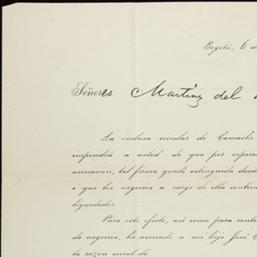 Bogotá, 6 de
Señores Martínz del
La inclusa circular de Camacho
impondrá a usted de que por espera
asociación, tal firma quedó extinguida desde
o que los negocios a cargo de ella continú
liquidador.
Para este efecto, así como para conti
de negocios, he asociado a mi hijo José
la razón social de